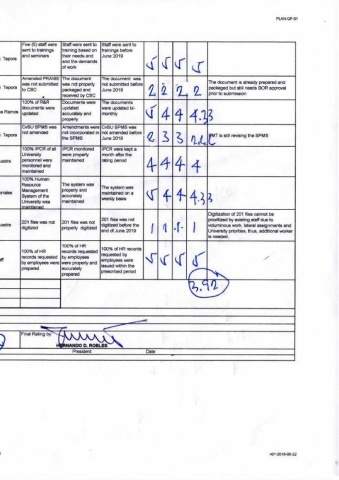 PLAN-QF-01
Five (5) staff were sent to trainings and seminars
Staff were sent to training based on their needs and and the demands of work
Staff were sent to trainings before June 2019
5 5 5 5
Tepora
Amended PRAISE was not submitted to CSC
The document was not properly packaged and received by CSC
The document was not submitted before June 2019
2 2 2 2
The document is already prepared and packaged but still needs BOR approval prior to submission
Ramos
100% of R&R documents were updated
Documents were updated accurately and properly
The documents were updated bi-monthly
5 4 4 4.33
Tepora
CvSU SPMS was not amended
Amendments were not incorporated in the SPMS
CvSU SPMS was not amended before June 2019
2 3 3
PMT is still revising the SPMS
100% IPCR of all University personnel were monitored and maintained
IPCR monitored were properly maintained
IPCR were kept a month after the rating period
4 4 4 4
100% Human Resource Management System of the University was maintained
The system was properly and accurately maintained
The system was maintained on a weekly basis
5 4 4 4.33
201 files was not digitized
201 files was not properly digitized
201 files was not digitized before the end of June 2019
1 1 1 1
Digitization of 201 files cannot be prioritized by existing staff due to voluminous work, lateral assignments and University priorities, thus, additional worker is needed.
100% of HR records requested by employees were prepared
100% of HR records requested by employees were properly and accurately prepared
100% of HR records requested by employees were issued within the prescribed period
5 5 5 5
3.92
Final Rating by:
HERNANDO D. ROBLES
President
Date